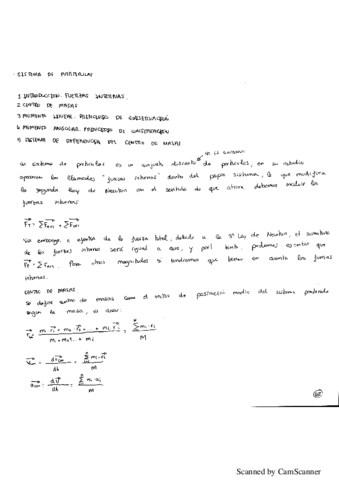 SISTEMA DE PARTÍCULAS
1 INTRODUCCIÓN. FUERZAS INTERNAS.
2 CENTRO DE MASAS
3 MOMENTO LINEAL. PRINCIPIO DE CONSERVACIÓN
4 MOMENTO ANGULAR. PRINCIPIO DE CONSERVACIÓN
5 SISTEMA DE REFERENCIA DEL CENTRO DE MASAS
un sistema de partículas es un conjunto discreto de partículas, en su estudio
aparecen las llamadas "fuerzas internas" dentro del propio sistema, lo que modifica
la segunda ley de Newton en el sentido de que ahora debemos incluir las
fuerzas internas:
Sin embargo, a efectos de la fuerza total, debido a la 3ª Ley de Newton, el sumatorio
de las fuerzas internas será igual a cero, y por tanto podremos escribir que
Para otras magnitudes si tendremos que tener en cuenta las fuerzas
internas.
CENTRO DE MASAS
Se define centro de masas como el vector de posición medio del sistema ponderado
según la masa, es decir:
Scanned by CamScanner